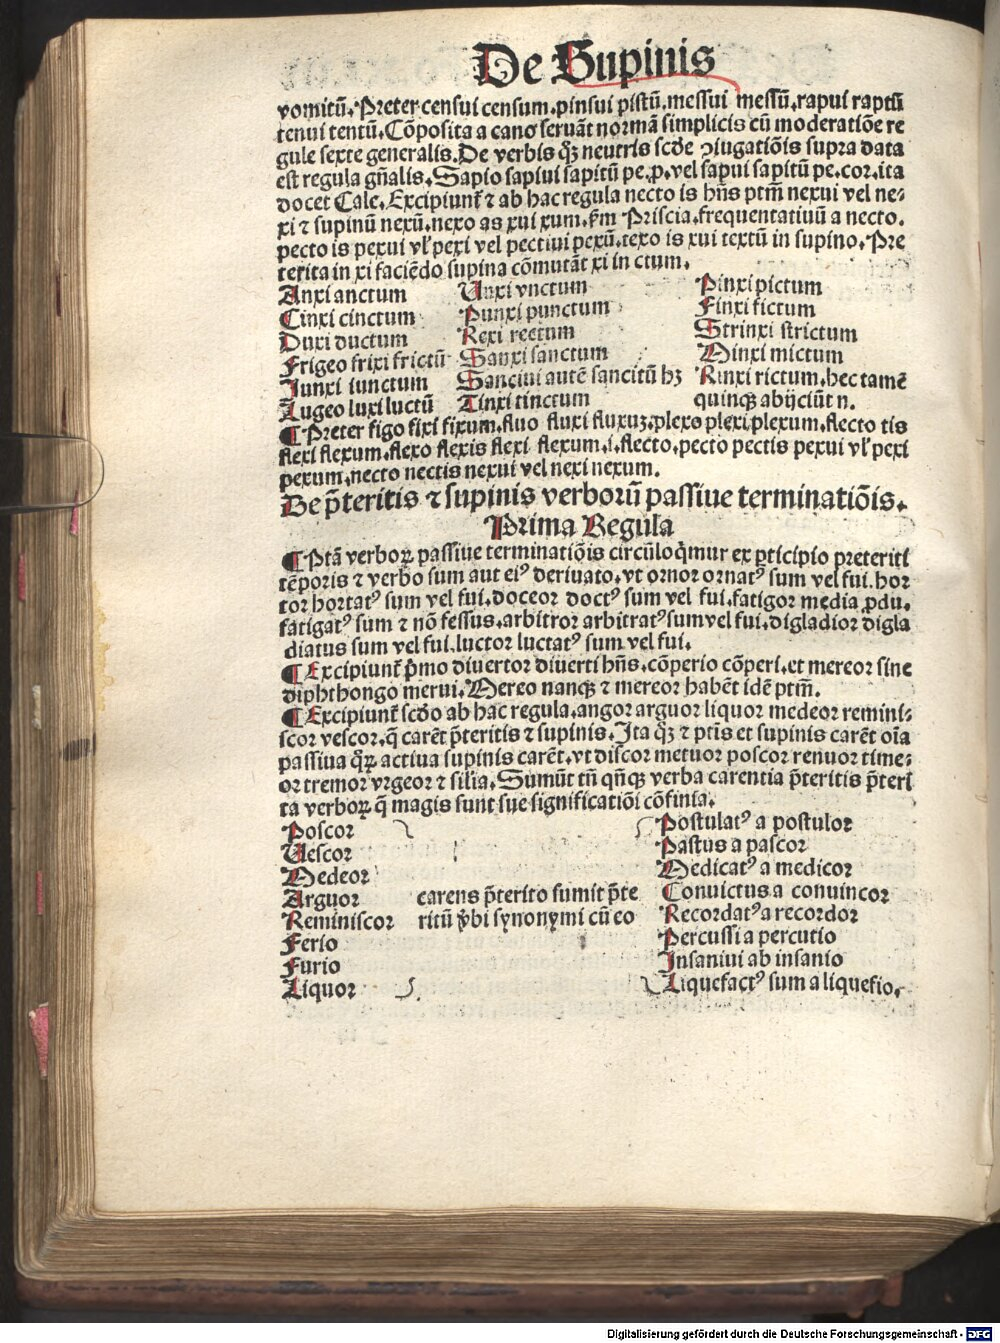 De Supinis
vomitū. Preter censui censum. pinsui pistū. messui messū. rapui raptū
tenui tentū. Cōposita a cano servāt normā simplicis cū moderatiōe re
gule sexte generalis. De verbis qꝫ neutris scḋe ꝯiugatiōis supra data
est regula gn̄alis. Sapio sapiui sapitū pe. p. vel sapui sapitū pe. cor. ita
docet Cale. Excipiunt᷑ ⁊ ab hac regula necto is hn̄s ptm̄ nexui vel ne⸗
xi ⁊ supinū nexū. nexo as xui xum. ẜm Priscia. frequentatiuū a necto.
pecto is pexui vl᷑ pexi vel pectiui pexū. texo is xui textū in supino. Pre
terita in xi faciēdo supina cōmutāt xi in ctum.
Anxi anctum Unxi vnctum Pinxi pictum
Cinxi cinctum Punxi punctum Finxi fictum
Duxi ductum Rexi rectum Strinxi strictum
Frigeo frixi frictū Sanxi sanctum Minxi mictum
Junxi iunctum Sanciui autē sancitū hꝫ Rinxi rictum. hec tamē
Lugeo luxi luctū Tinxi tinctum quinqꝫ abijciūt n.
¶ Preter figo fixi fixum. fluo fluxi fluxuꝫ. plexo plexi plexum. flecto tis
flexi flexum. flexo flexis flexi flexum. i. flecto. pecto pectis pexui vl᷑ pexi
pexum. necto nectis nexui vel nexi nexum.
De p̄teritis ⁊ supinis verborū passiue terminatiōis.
Prima Regula
¶ Ptā verboꝝ passiue terminatiōis circūloq̄mur ex pticipio preteriti
tēporis ⁊ verbo sum aut eiꝰ deriuato. vt ornor ornatꝰ sum vel fui. hor
tor hortatꝰ sum vel fui. doceor doctꝰ sum vel fui. fatigor media ꝓdu.
fatigatꝰ sum ⁊ nō fessus. arbitror arbitratꝰ sum vel fui. digladior digla
diatus sum vel fui. luctor luctatꝰ sum vel fui.
¶ Excipiunt᷑ p̄mo diuertor diuerti hn̄s. cōperio cōperi. et mereor sine
diphthongo merui. Mereo nanqꝫ ⁊ mereor habēt idē ptm̄.
¶ Excipiunt᷑ scḋo ab hac regula. angor arguor liquor medeor remini⸗
scor vescor. q̄ carēt p̄teritis ⁊ supinis. Ita qꝫ ⁊ ptīs et supinis carēt oīa
passiua qꝝ actiua supinis carēt. vt discor metuor poscor renuor time⸗
or tremor vrgeor ⁊ silia. Sumūt tn̄ qn̄qꝫ verba carentia p̄teritis p̄teri
ta verboꝝ q̄ magis sunt sue significatiōi cōfinia.
Poscor Postulatꝰ a postulor
Uescor Pastus a pascor
Medeor Medicatꝰ a medicor
Arguor carens p̄terito sumit p̄te Conuictus a conuincor
Reminiscor ritū v̄bi synonymi cū eo Recordatꝰ a recordor
Ferio Percussi a percutio
Furio Insaniui ab insanio
Liquor Liquefactꝰ sum a liquefio.
Digitalisierung gefördert durch die Deutsche Forschungsgemeinschaft - DFG